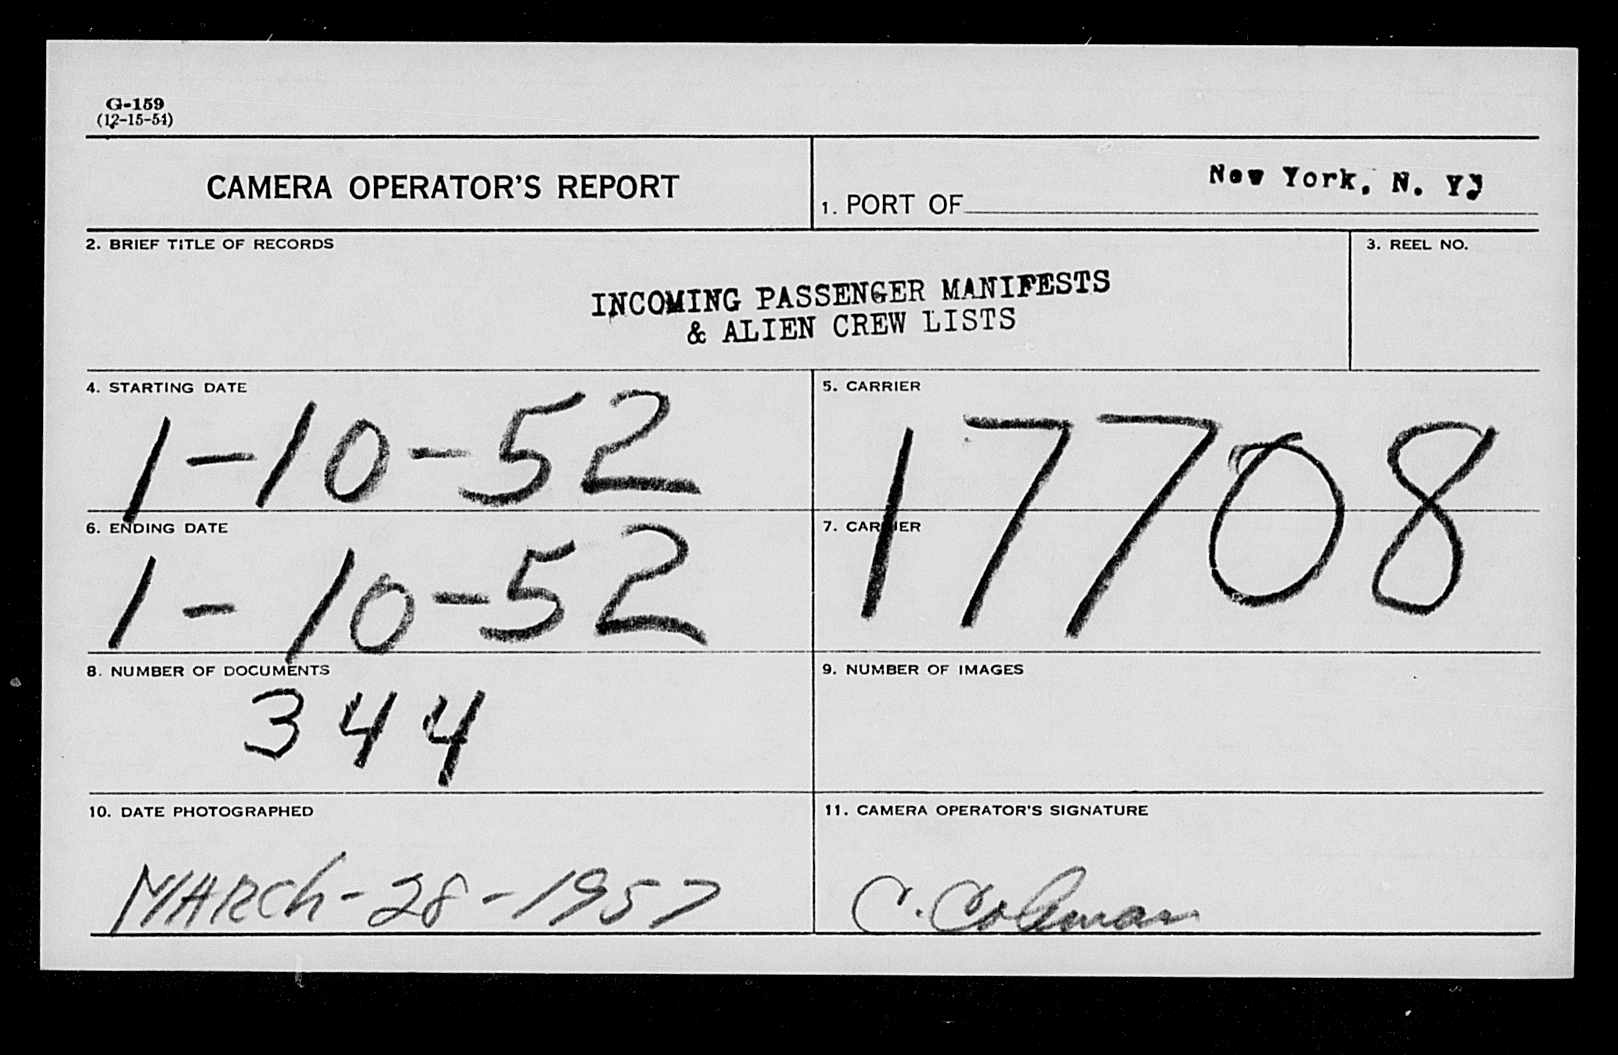 G-159
(12-15-54)
CAMERA OPERATOR'S REPORT
1. PORT OF New York, N. Y.
2. BRIEF TITLE OF RECORDS
3. REEL NO.
INCOMING PASSENGER MANIFESTS
& ALIEN CREW LISTS
4. STARTING DATE
1-10-52
5. CARRIER
17708
6. ENDING DATE
1-10-52
7. CARRIER
8. NUMBER OF DOCUMENTS
344
9. NUMBER OF IMAGES
10. DATE PHOTOGRAPHED
MARCh-28-1957
11. CAMERA OPERATOR'S SIGNATURE
C. Coleman